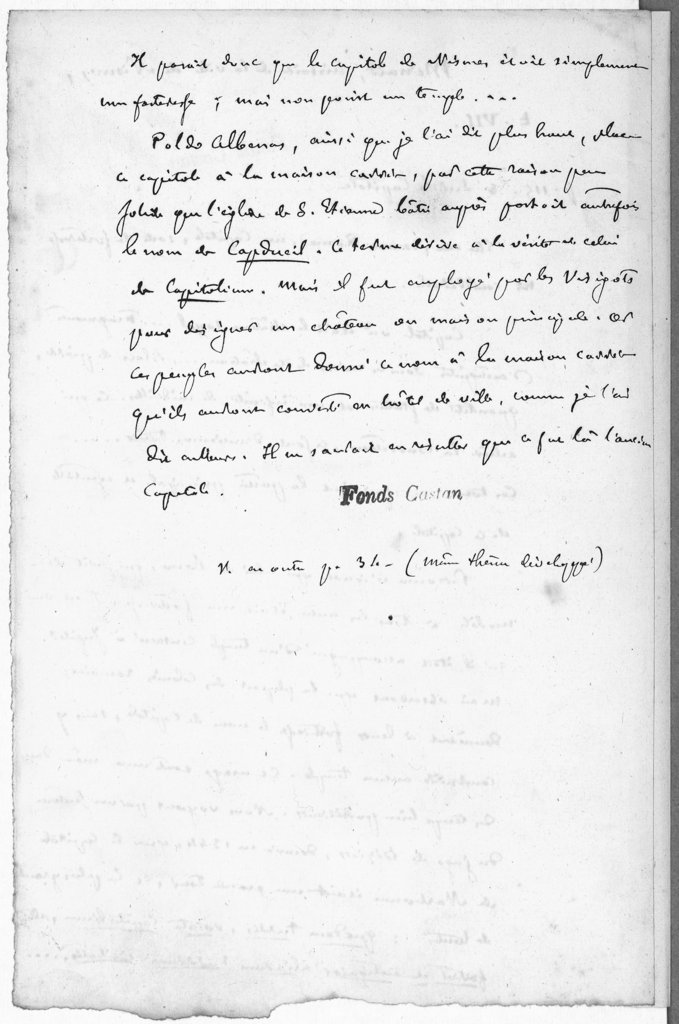 Il paroit donc que le capitole de Nismes étoit simplement
une forteresse ; mais non point un temple. ...
Poldo Albenas, ainsi que je l'ai dit plus haut, place
ce capitole à la maison carrée, par cette raison peu
solide que l'église de S. Etienne bâtie auprès portoit autrefois
le nom de Capdueil. Ce terme dérive à la vérité de celui
de Capitolium. Mais il fut employé par les Visigots
pour désigner un château ou maison principale. Or
ces peuples auront donné ce nom à la maison carrée
qu'ils auront convertie en hôtel de ville, comme je l'ai
dit ailleurs. Il ne sauroit en résulter que ce fut là l'ancien
Capitole.
Fonds Castan
V. en outre p. 34 - (même thème développé)